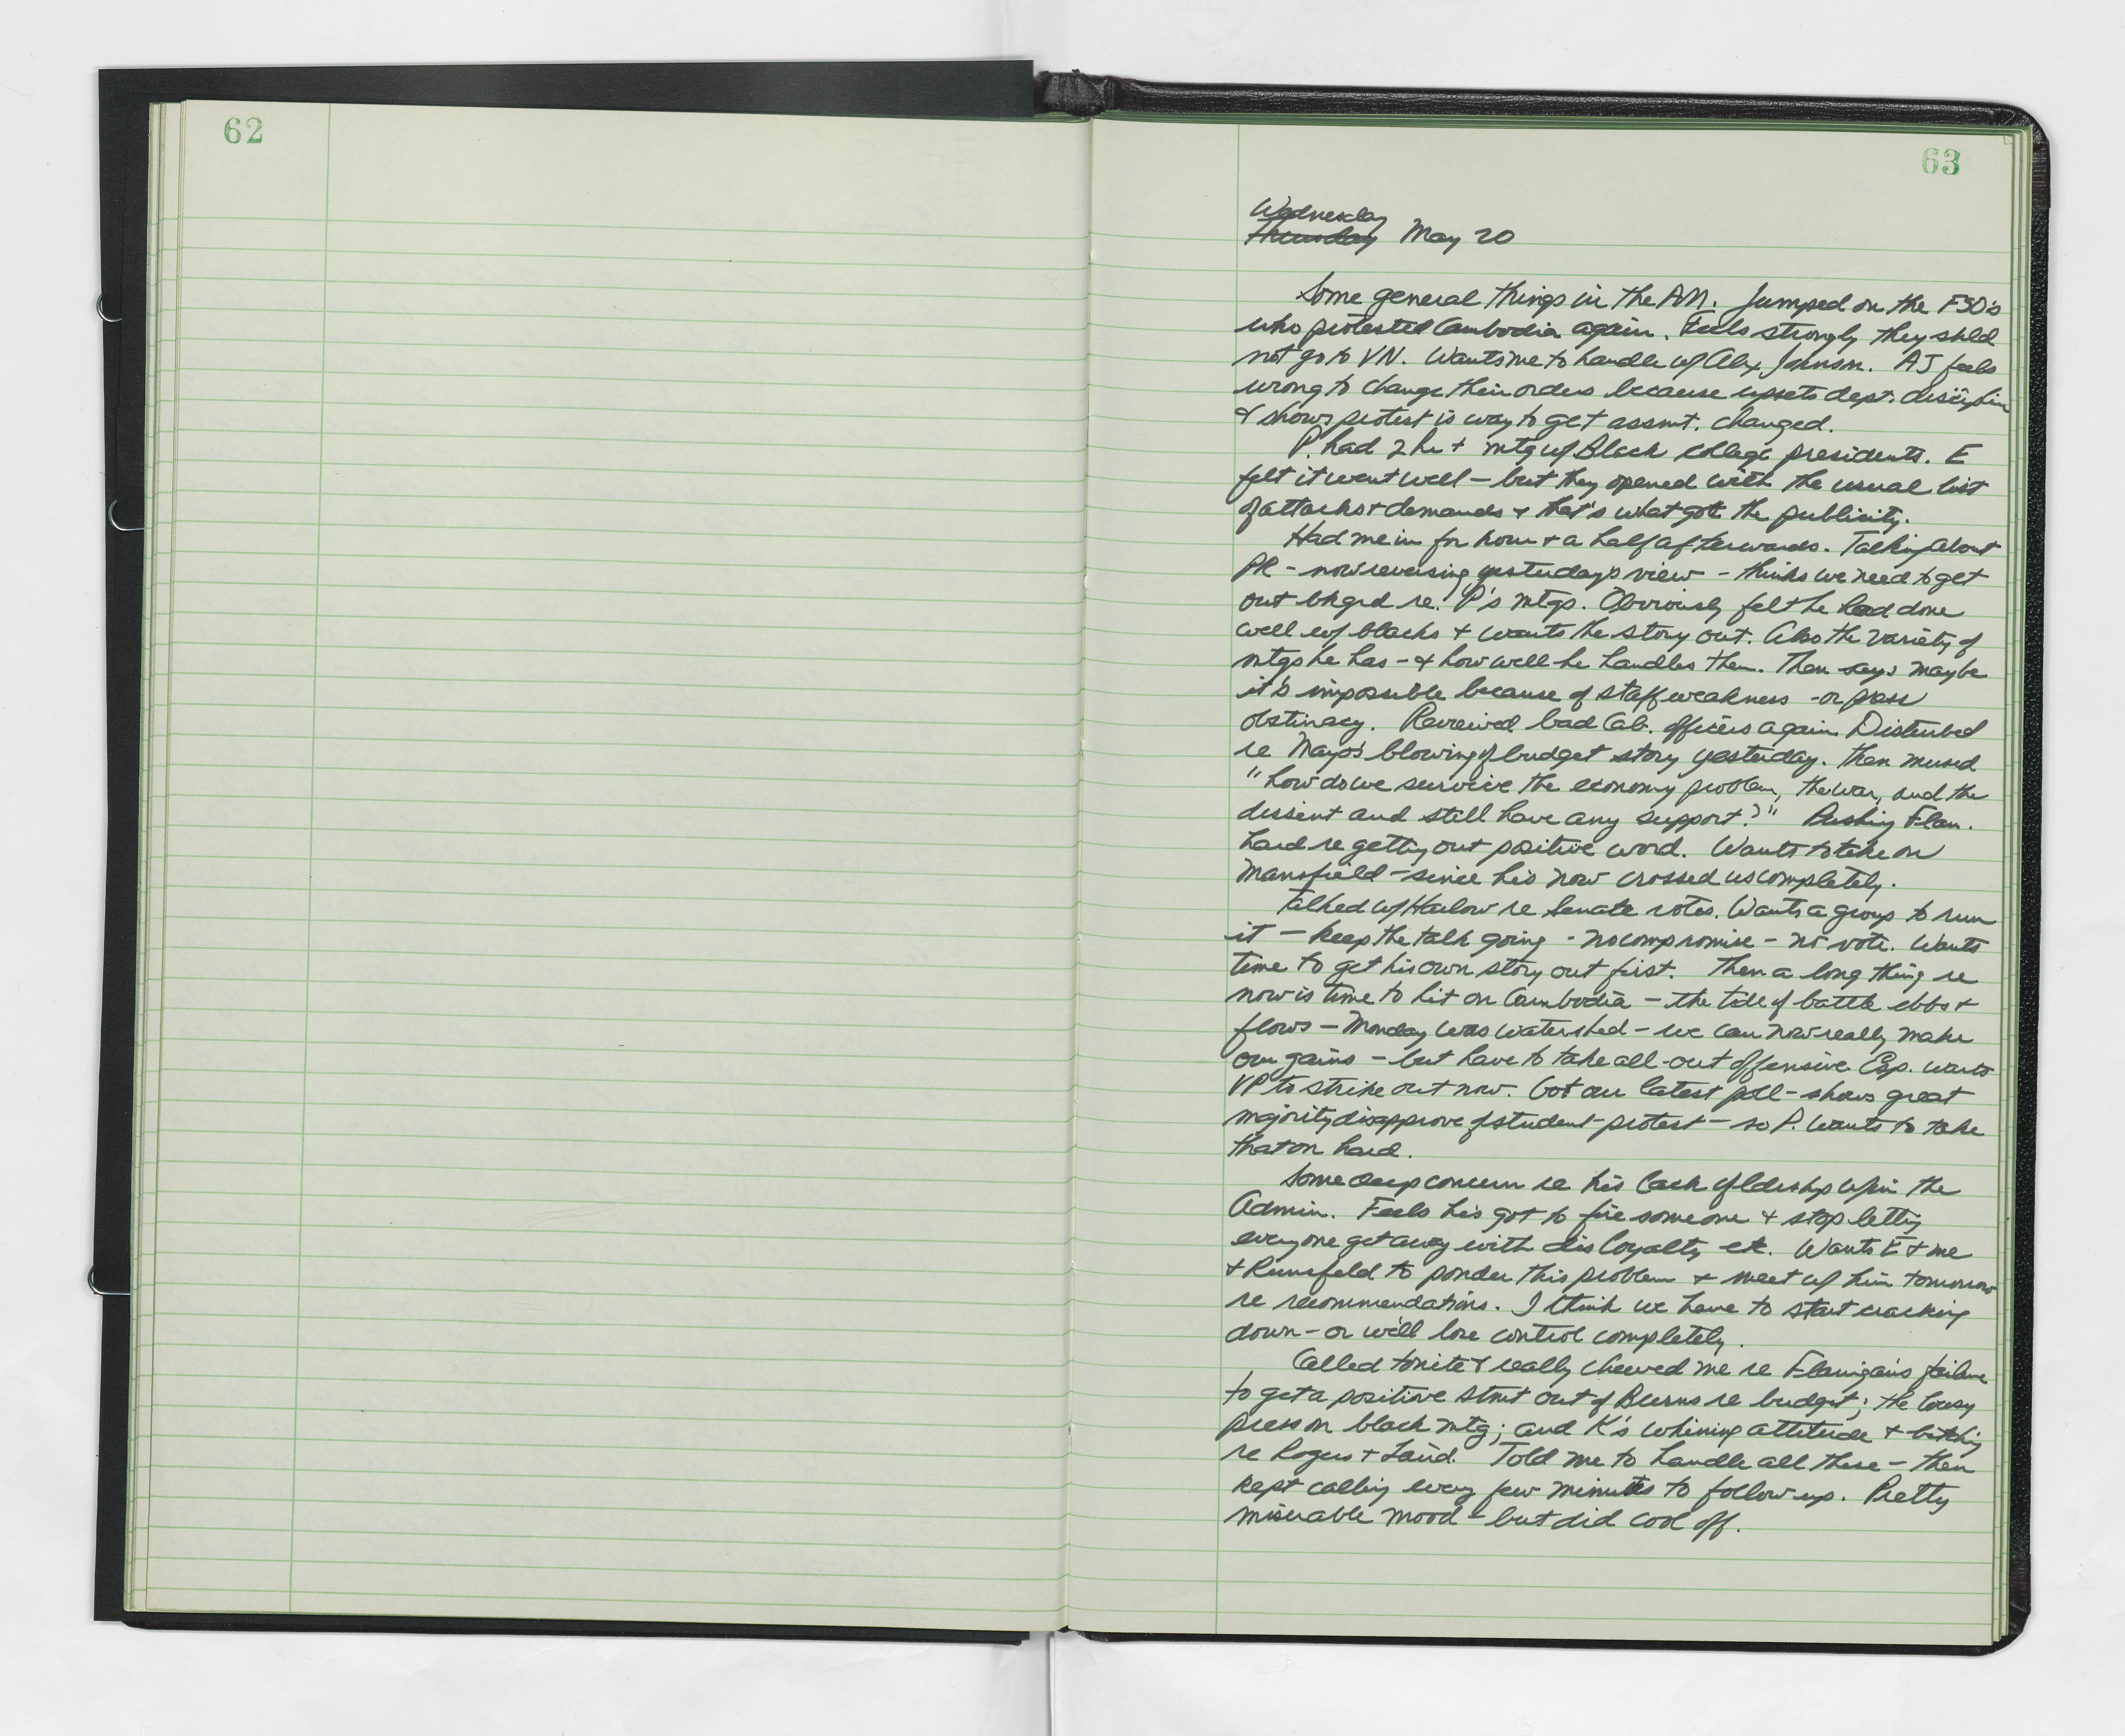 62
63
Wednesday
Thursday May 20
Some general things in the AM. Jumped on the FSO's
who protested Cambodia again. Feels strongly they shld
not go to VN. Wants me to handle w/ Alex Johnson. AJ feels
wrong to change their orders because upsets dept. discipline
& shows protest is way to get assmt. changed.
P. had 2 hr + mtg w/ Black college presidents. E
felt it went well – but they opened with the usual list
of attacks + demands + that's what got the publicity.
Had me in for hour + a half afterwards. Talking about
PR – now reversing yesterday's view – thinks we need to get
out bkgrd re. P's mtgs. Obviously felt he had done
well w/ blacks + wants the story out. Also the variety of
mtgs he has – & how well he handles them. Then says maybe
it's impossible because of staff weakness – or press
obstinacy. Reviewed bad Cab. officers again. Disturbed
re Mayo's blowing of budget story yesterday. Then mused
"how do we survive the economy problem, the war, and the
dissent and still have any support?" Pushing Flan.
hard re getting out positive word. Wants to take on
Mansfield – since he's now crossed us completely.
Talked w/ Harlow re Senate votes. Wants a group to run
it – keep the talk going – no compromise – no vote. Wants
time to get his own story out first. Then a long thing re
now is time to hit on Cambodia – the tide of battle ebbs +
flows – Monday was watershed – we can now really make
our gains – but have to take all-out offensive. Esp. wants
VP to strike out now. Got our latest poll – shows great
majority disapprove of student protest – so P. wants to take
that on hard.
Some deep concern re his lack of ldership w/in the
Admin. Feels he's got to fire someone + stop letting
everyone get away with disloyalty etc. Wants E + me
+ Rumsfeld to ponder this problem + meet w/ him tomorrow
re recommendations. I think we have to start cracking
down – or we'll lose control completely.
Called tonite & really chewed me re Flanigan's failure
to get a positive stmt out of Burns re budget; the lousy
press on black mtg; and K's whining attitude + bitching
re Rogers + Laird. Told me to handle all these – then
kept calling every few minutes to follow up. Pretty
miserable mood – but did cool off.